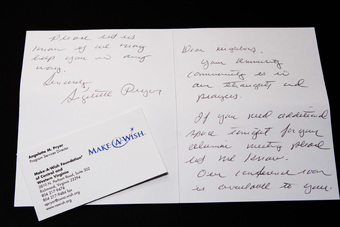 Dear neighbors,
Your community
community is in
our thoughts and
prayers.
If you need additional
space tonight for your
meeting please
let me know.
Our conference room
is available to you.
Please let us
know if we may
help you in any
way.
Sincerely
Angelette Pryor
MAKE-A-WISH
Program Services Director
Make-A-Wish Foundation
of Central and
Western Virginia
Richmond, Virginia